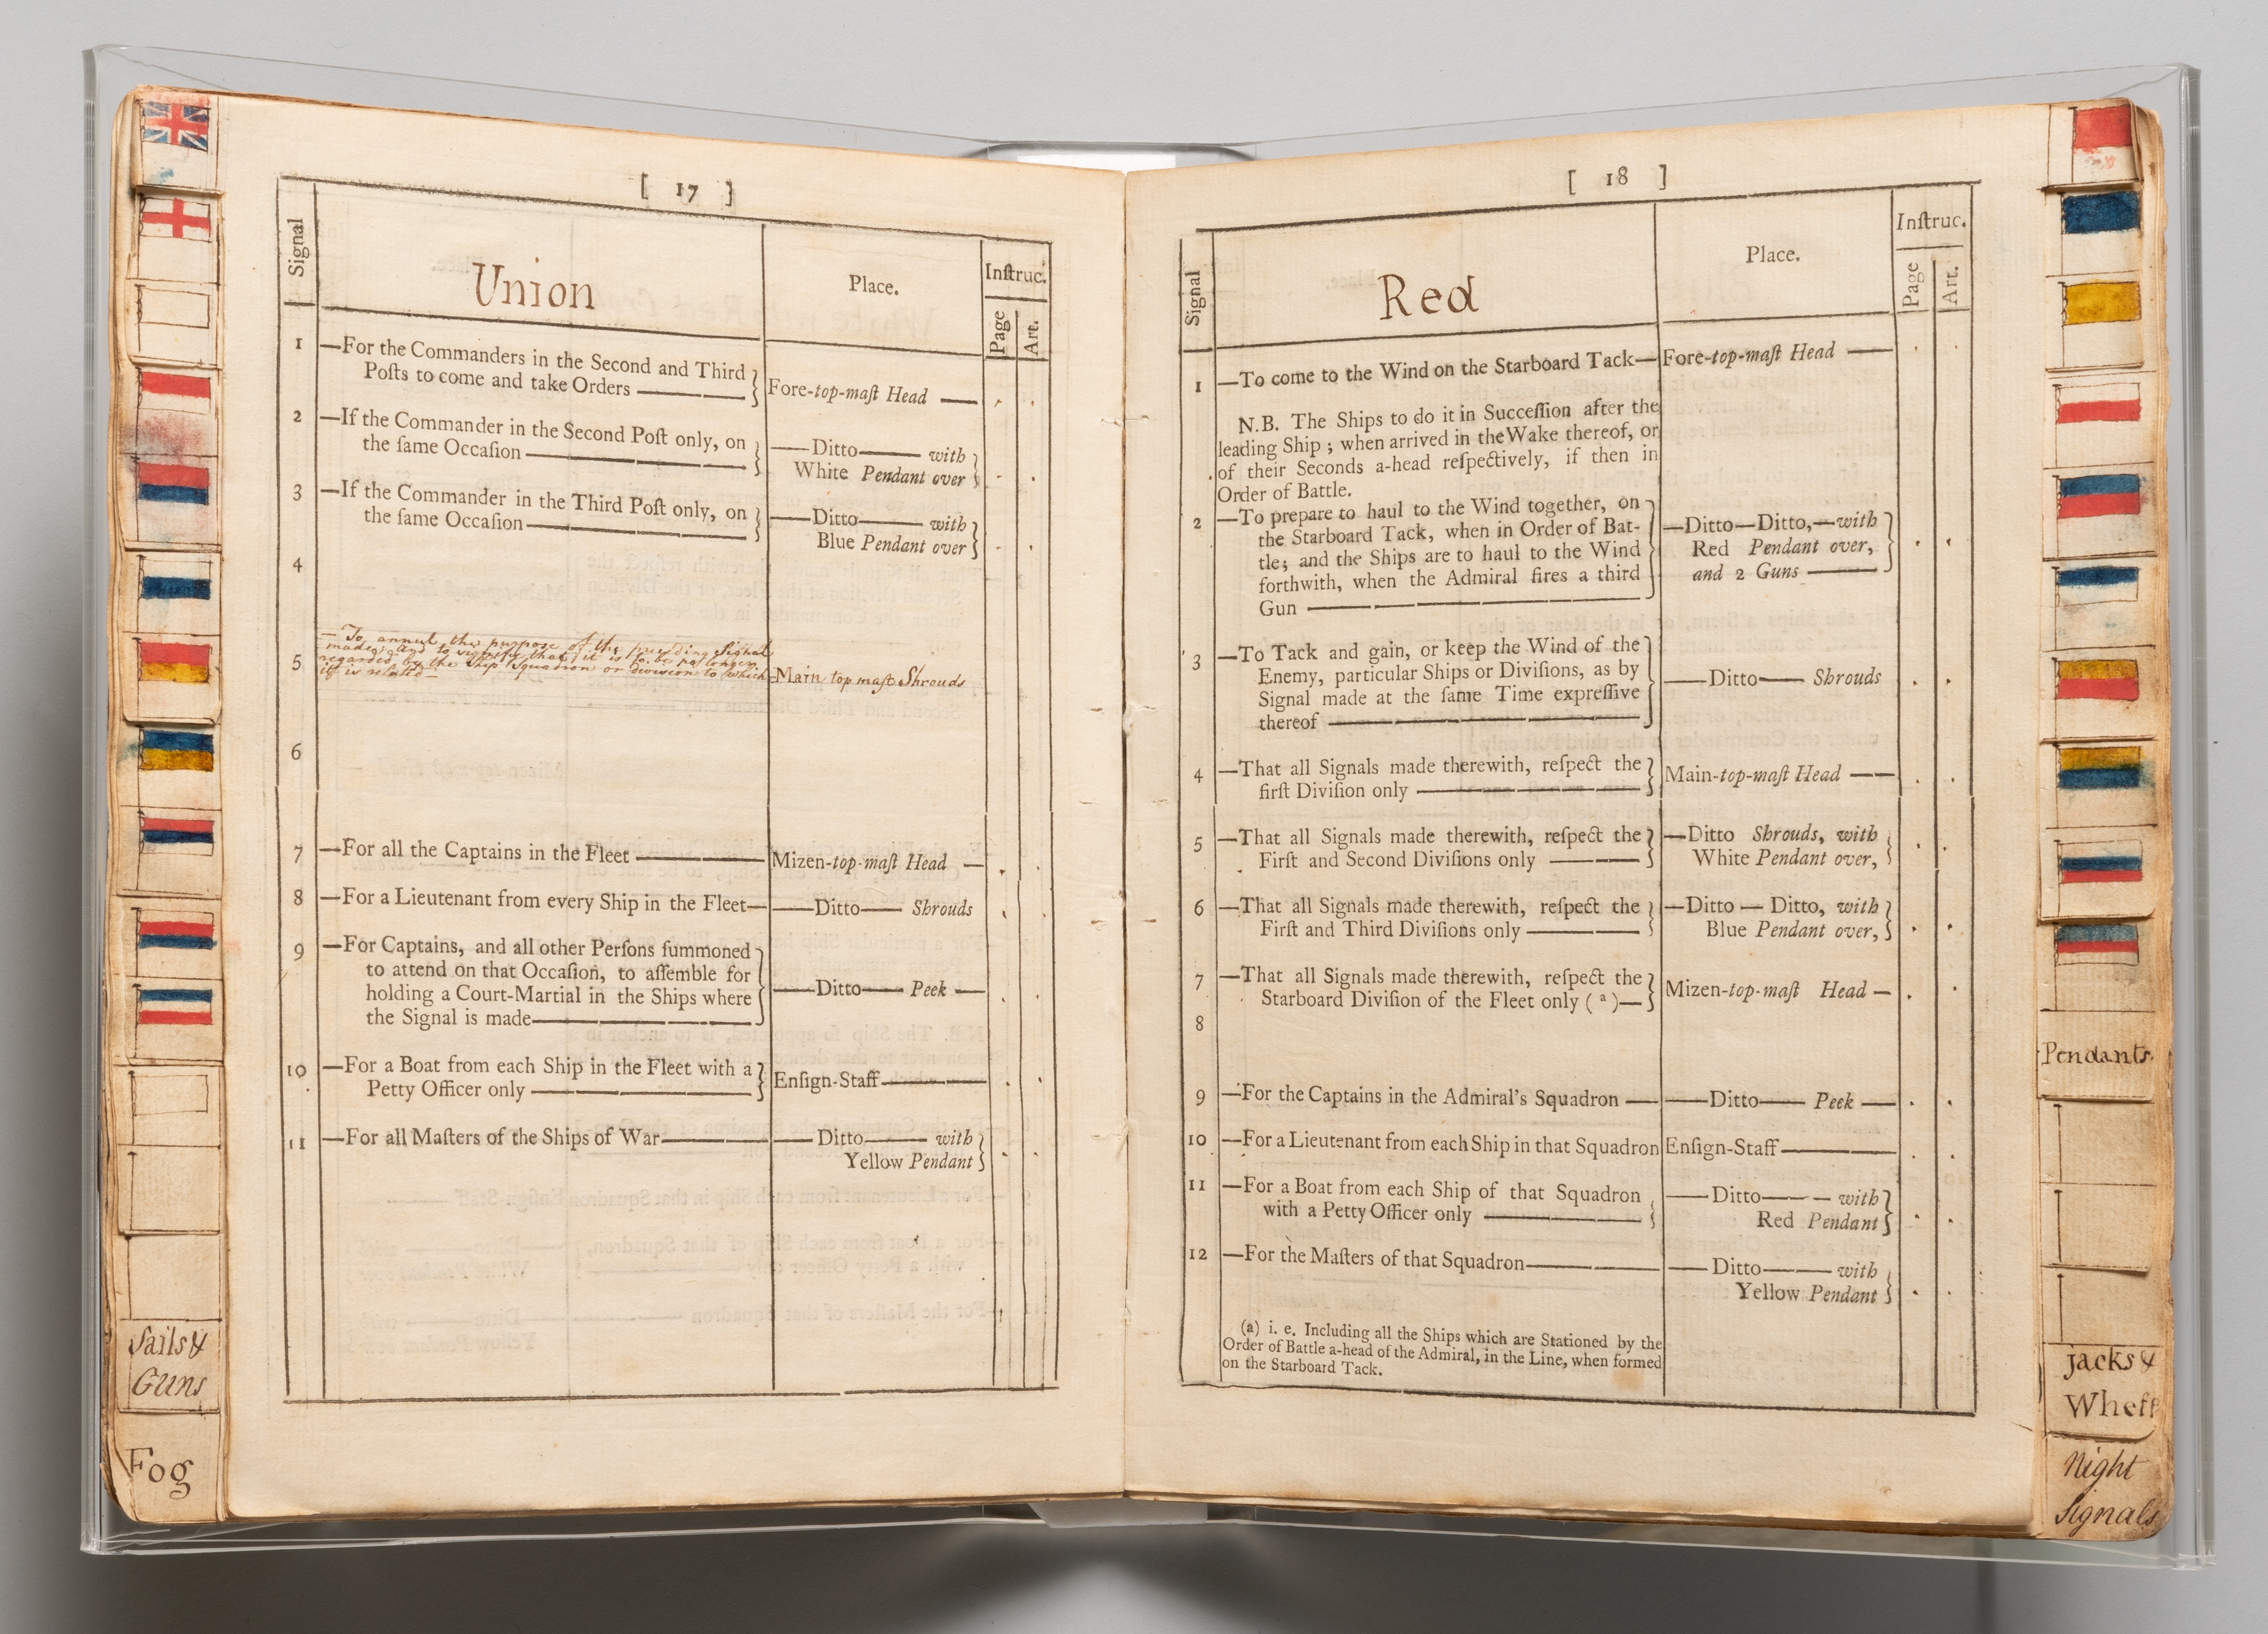 [ 17 ]
Signal
Union
Place.
Inſtruc.
Page
Art.
1 —For the Commanders in the Second and Third
Poſts to come and take Orders ——
Fore-top-maſt Head —
2 —If the Commander in the Second Poſt only, on
the ſame Occaſion ——
—Ditto— with
White Pendant over
3 —If the Commander in the Third Poſt only, on
the ſame Occaſion ——
—Ditto— with
Blue Pendant over
4
5 — To annul the purpose of the preceding Signal
made, and to signify that it is to be no longer
regarded by the Ship Squadron or division to which
it is related —
Main top maſt Shrouds
6
7 —For all the Captains in the Fleet ——
Mizen-top-maſt Head —
8 —For a Lieutenant from every Ship in the Fleet—
—Ditto— Shrouds
9 —For Captains, and all other Perſons ſummoned
to attend on that Occaſion, to aſſemble for
holding a Court-Martial in the Ships where
the Signal is made——
—Ditto— Peek —
10 —For a Boat from each Ship in the Fleet with a
Petty Officer only ——
Enſign-Staff——
11 —For all Maſters of the Ships of War——
— Ditto— with
Yellow Pendant
Sails &
Guns
Fog
[ 18 ]
Signal
Red
Place.
Inſtruc.
Page
Art.
1 —To come to the Wind on the Starboard Tack—
Fore-top-maſt Head —
N.B. The Ships to do it in Succeſſion after the
leading Ship ; when arrived in the Wake thereof, or
of their Seconds a-head reſpectively, if then in
Order of Battle.
2 —To prepare to haul to the Wind together, on
the Starboard Tack, when in Order of Bat-
tle; and the Ships are to haul to the Wind
forthwith, when the Admiral fires a third
Gun ——
—Ditto—Ditto,—with
Red Pendant over,
and 2 Guns ——
3 —To Tack and gain, or keep the Wind of the
Enemy, particular Ships or Diviſions, as by
Signal made at the ſame Time expreſſive
thereof ——
—Ditto— Shrouds
4 —That all Signals made therewith, reſpect the
firſt Diviſion only ——
Main-top-maſt Head ——
5 —That all Signals made therewith, reſpect the
Firſt and Second Diviſions only ——
—Ditto Shrouds, with
White Pendant over,
6 —That all Signals made therewith, reſpect the
Firſt and Third Diviſions only ——
—Ditto — Ditto, with
Blue Pendant over,
7 —That all Signals made therewith, reſpect the
Starboard Diviſion of the Fleet only (a)—
Mizen-top-maſt Head —
8
9 —For the Captains in the Admiral's Squadron ——
—Ditto— Peek —
10 —For a Lieutenant from each Ship in that Squadron
Enſign-Staff——
11 —For a Boat from each Ship of that Squadron
with a Petty Officer only ——
—Ditto— — with
Red Pendant
12 —For the Maſters of that Squadron——
—Ditto—— with
Yellow Pendant
(a) i. e. Including all the Ships which are Stationed by the
Order of Battle a-head of the Admiral, in the Line, when formed
on the Starboard Tack.
Pendants
jacks &
Wheft
Night
Signals